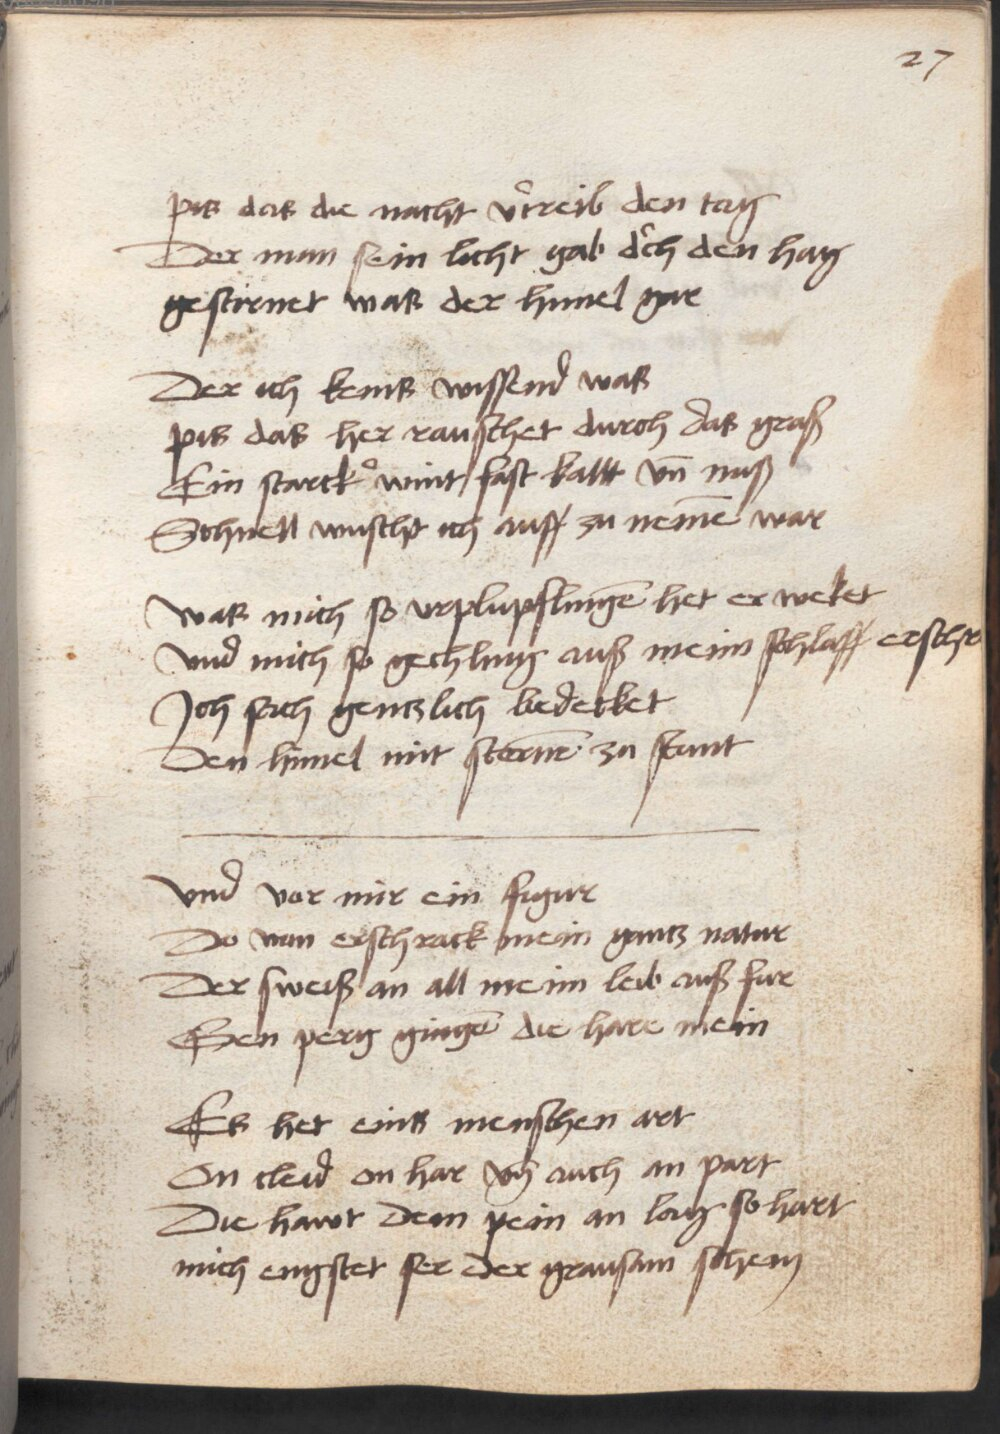 27
pis das die nacht v͛treib den tag
Der man sein licht gab dͮch den hag
gestirnet waß der himel gar
Der ich keinß wissend waß
pis das her rauschet durch das graß
Ein starckͦ wint fast kallt vn̄ naß
Schnell wuscht ich auff zu nemē war
Waß mich so vrplupflingē het er weket
Vnd mich so gechling auß meim schlaff erschr
Ich sach gentzlich bedecket
Den himel mit sternē zu stunt
Vnd vor mir ein figur
Do van erschrack mein gantz natur
Der sweiß an all meim leib auß fur
Gen perg gingē die hare mein
Es het einß menschen art
On cleid on har vn̄ auch an part
Die hawt dem pein an lag so hart
mich engstet ser der grausam schein